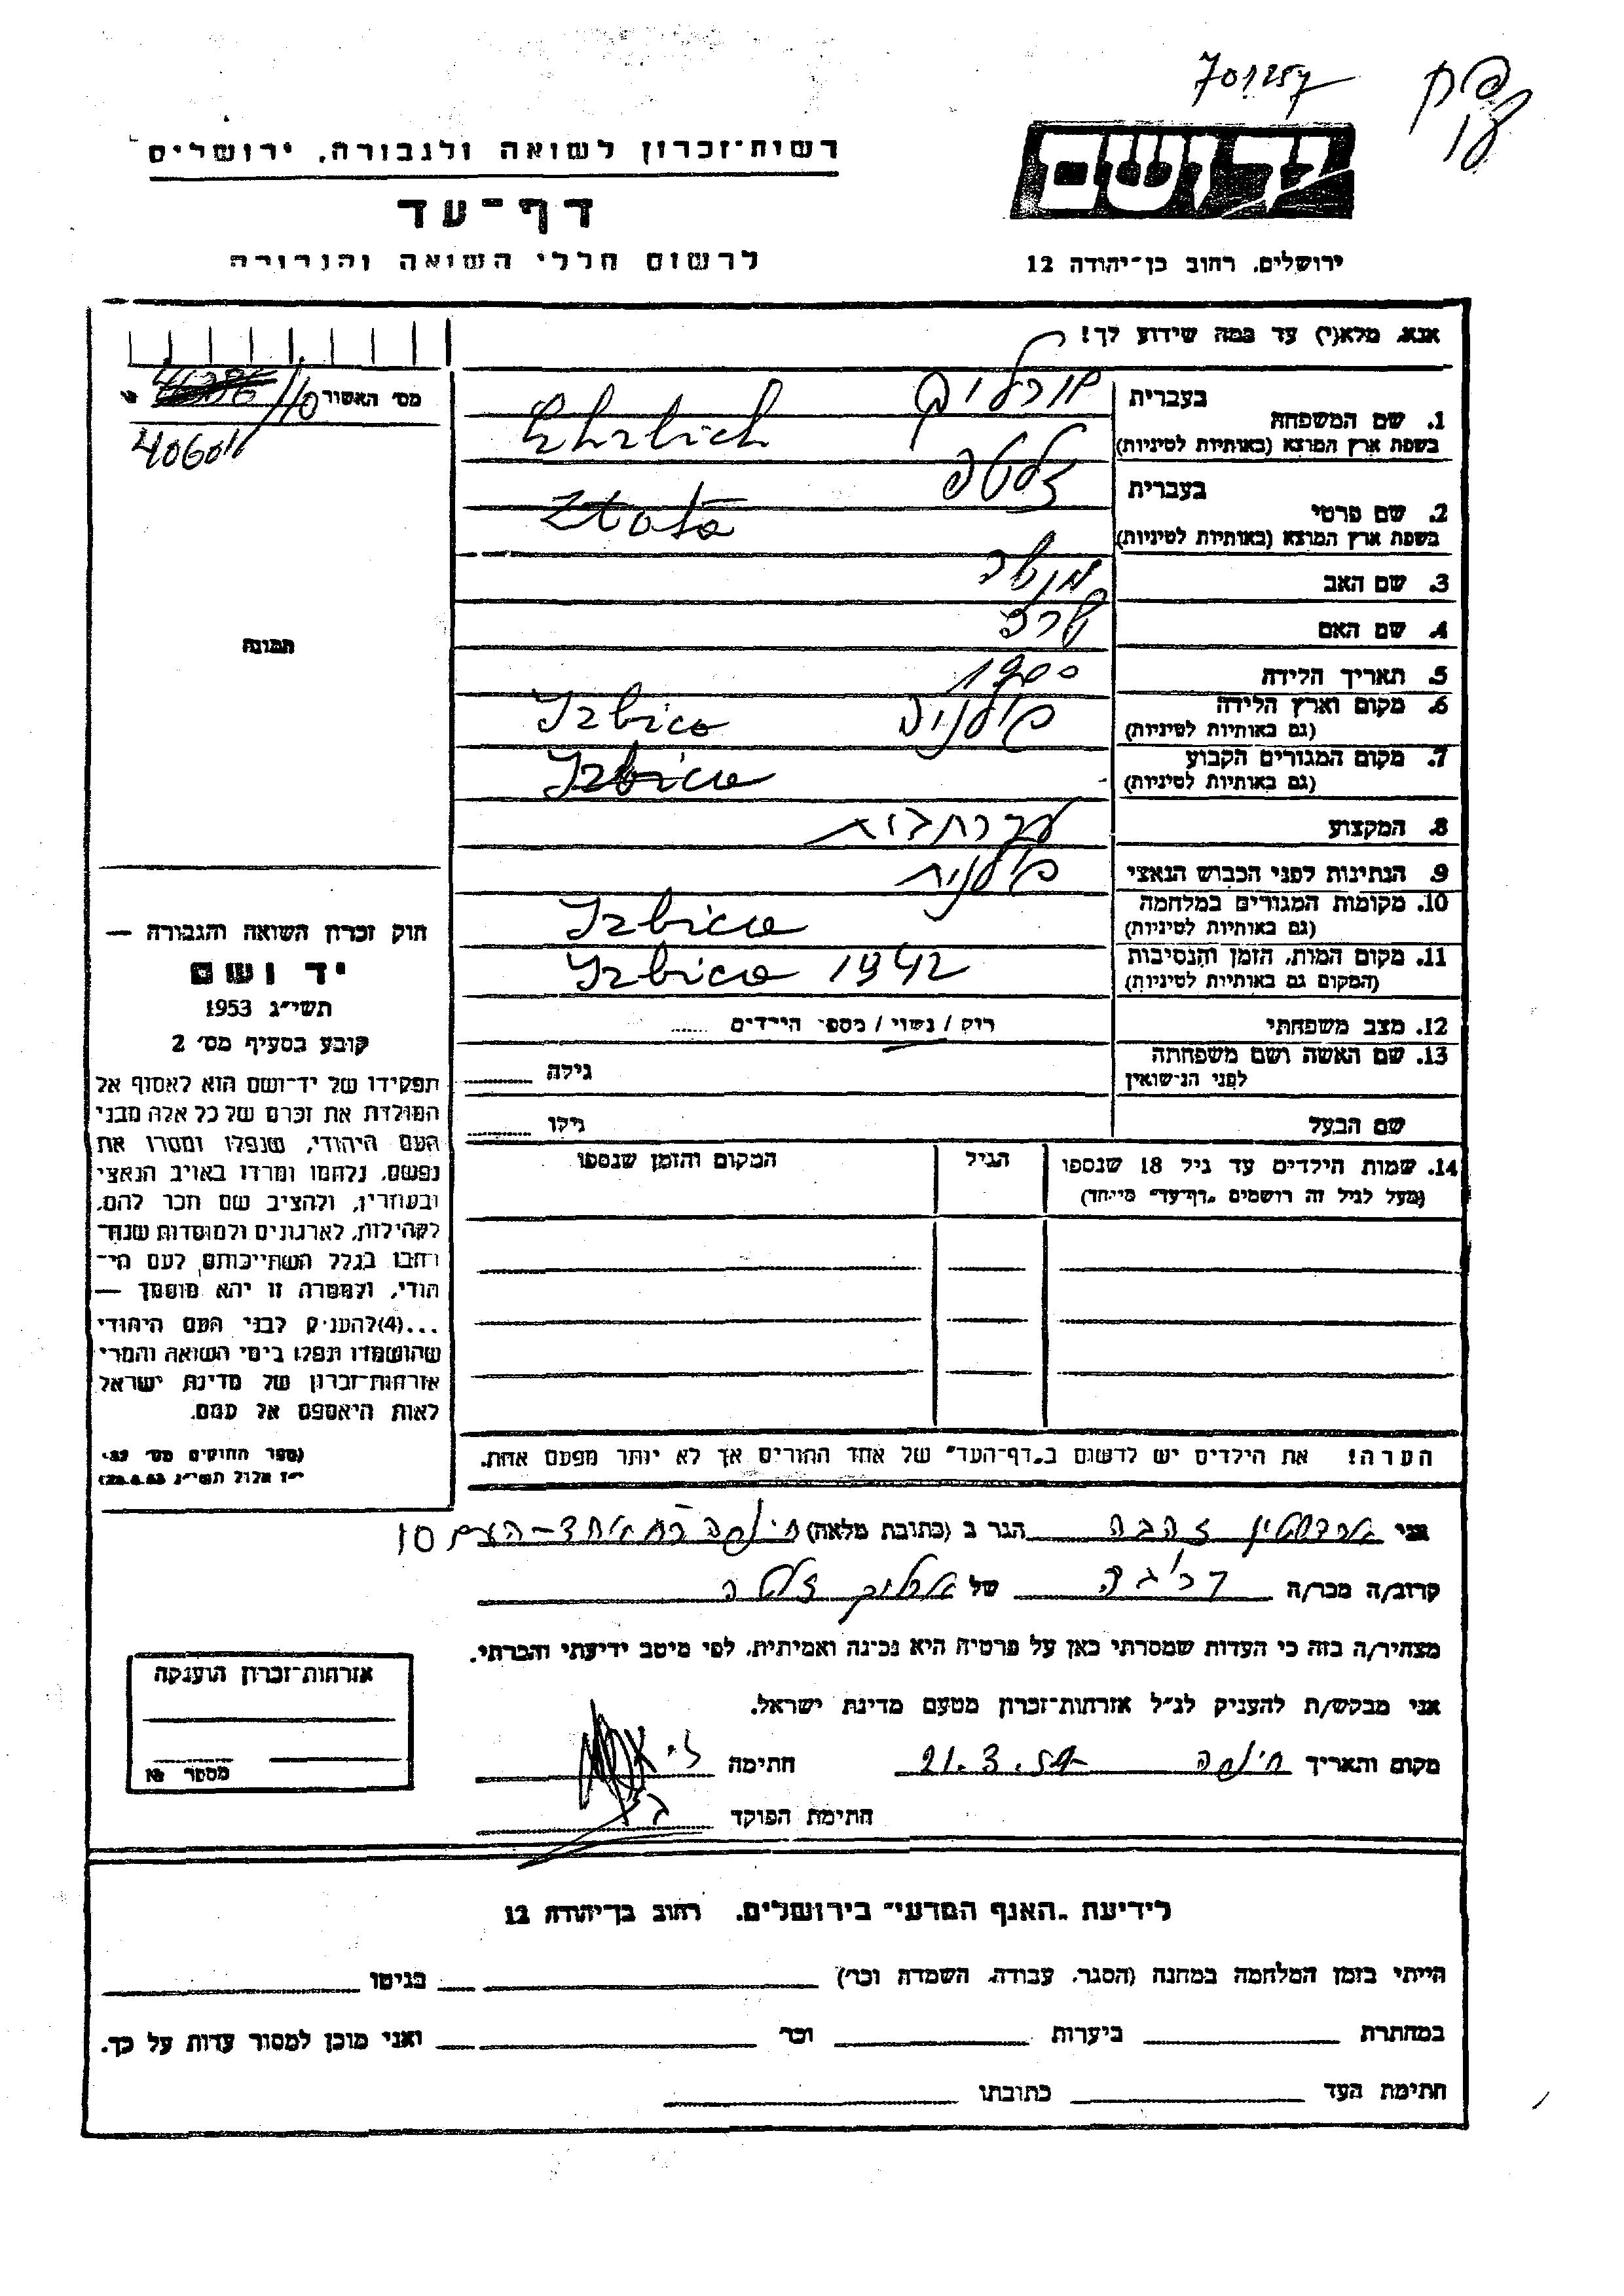 701257
יד ושם
רשות-זכרון לשואה ולגבורה, ירושלים
דף-עד
לרשום חללי השואה והגבורה
ירושלים, רחוב בן-יהודה 12
אנא, מלא(י) עד כמה שידוע לך!
מס׳ האשור
40601
1. שם המשפחה
בעברית
בשפת ארץ המוצא (באותיות לטיניות)
Ehrlich
2. שם פרטי
בעברית
זלטה
בשפת ארץ המוצא (באותיות לטיניות)
Złota
3. שם האב
4. שם האם
5. תאריך הלידה 1900
6. מקום וארץ הלידה
(גם באותיות לטיניות)
פולניה Izbica
7. מקום המגורים הקבוע
(גם באותיות לטיניות)
Izbica
8. המקצוע
עקרת בית
9. הנתינות לפני הכבוש הנאצי
פולנית
10. מקומות המגורים במלחמה
(גם באותיות לטיניות)
Izbica
11. מקום המות, הזמן והנסיבות
(המקום גם באותיות לטיניות)
Izbica 1942
12. מצב משפחתי
רוק / נשוי / מספר הילדים
13. שם האשה ושם משפחתה
לפני הנישואין
גילה
שם הבעל
גילו
14. שמות הילדים עד גיל 18 שנספו
(מעל לגיל זה רושמים "דף-עד" מיוחד)
הגיל
המקום והזמן שנספו
הערה! את הילדים יש לרשום ב"דף-העד" של אחד ההורים אך לא יותר מפעם אחת.
תמונה
חוק זכרון השואה והגבורה —
יד ושם
תשי״ג 1953
קובע בסעיף מס׳ 2
תפקידו של יד-ושם הוא לאסוף אל
המולדת את זכרם של כל אלה מבני
העם היהודי, שנפלו ומסרו את
נפשם, נלחמו ומרדו באויב הנאצי
ובעוזריו, ולהציב שם וזכר להם,
לקהילות, לארגונים ולמוסדות שנח-
רחבו בגלל השתייכותם לעם הי-
הודי, ולמטרה זו יהא מוסמך —
...(4)להעניק לבני העם היהודי
שהושמדו ונפלו בימי השואה והמרי
אזרחות-זכרון של מדינת ישראל
לאות היאספם אל עמם.
(ספר החוקים מס׳
י״ז אלול תשי״ג
אני זהבה הגר ב (כתובת מלאה) חיפה אחד-העם 10
קרוב/ה מכר/ה של זלטה
מצהיר/ה בזה כי העדות שמסרתי כאן על פרטיה היא נכונה ואמיתית, לפי מיטב ידיעתי והכרתי.
אני מבקש/ת להעניק לנ״ל אזרחות-זכרון מטעם מדינת ישראל.
מקום ותאריך חיפה 21.3. חתימה
חתימת הפוקד
אזרחות-זכרון הוענקה
מספר №
לידיעת "האגף המדעי" בירושלים, רחוב בן-יהודה 12
הייתי בזמן המלחמה במחנה (הסגר, עבודה, השמדה וכו׳) בגיטו
במחתרת ביערות וכו׳ ואני מוכן למסור עדות על כך.
חתימת העד כתובתו